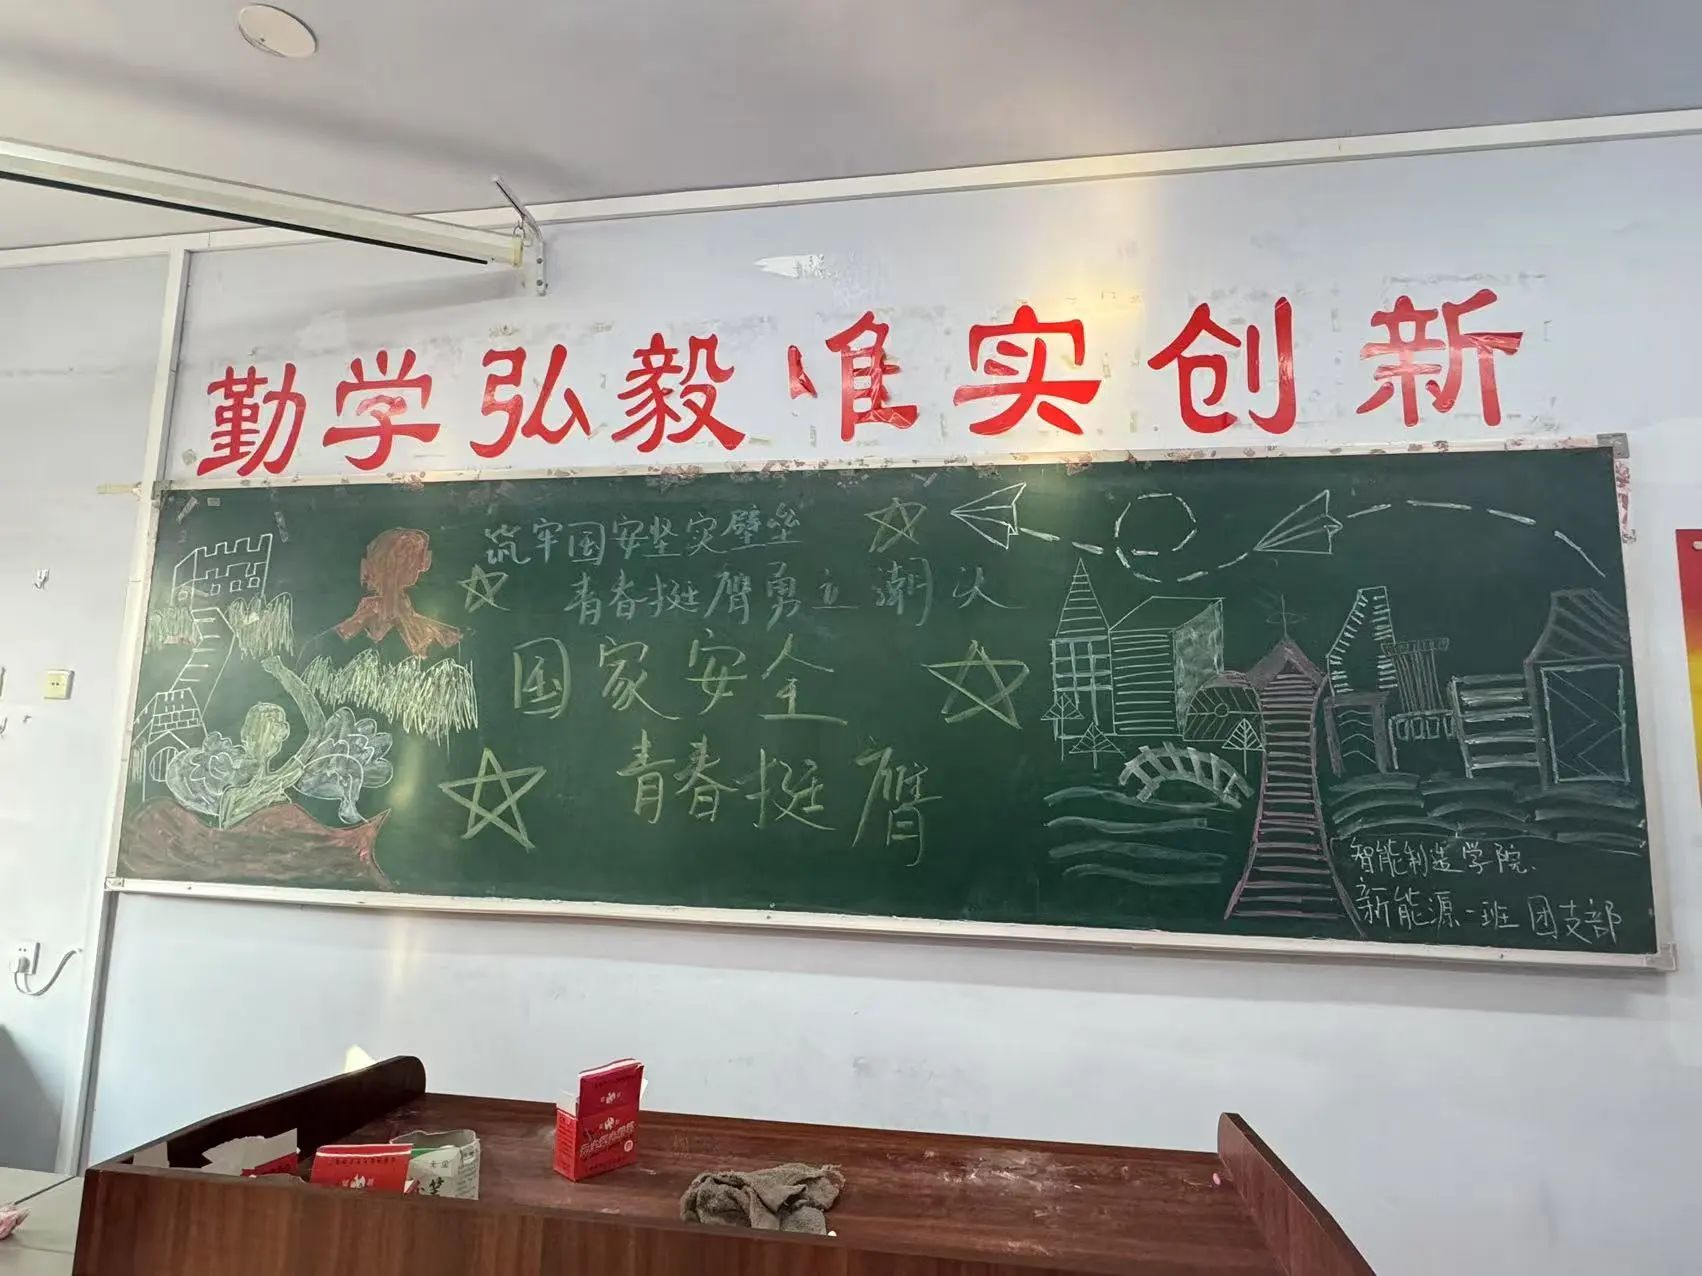 勤学弘毅 唯实创新
筑牢国安坚实壁垒
青春挺膺勇立潮头
国家安全
青春挺膺
智能制造学院
新能源一班团支部